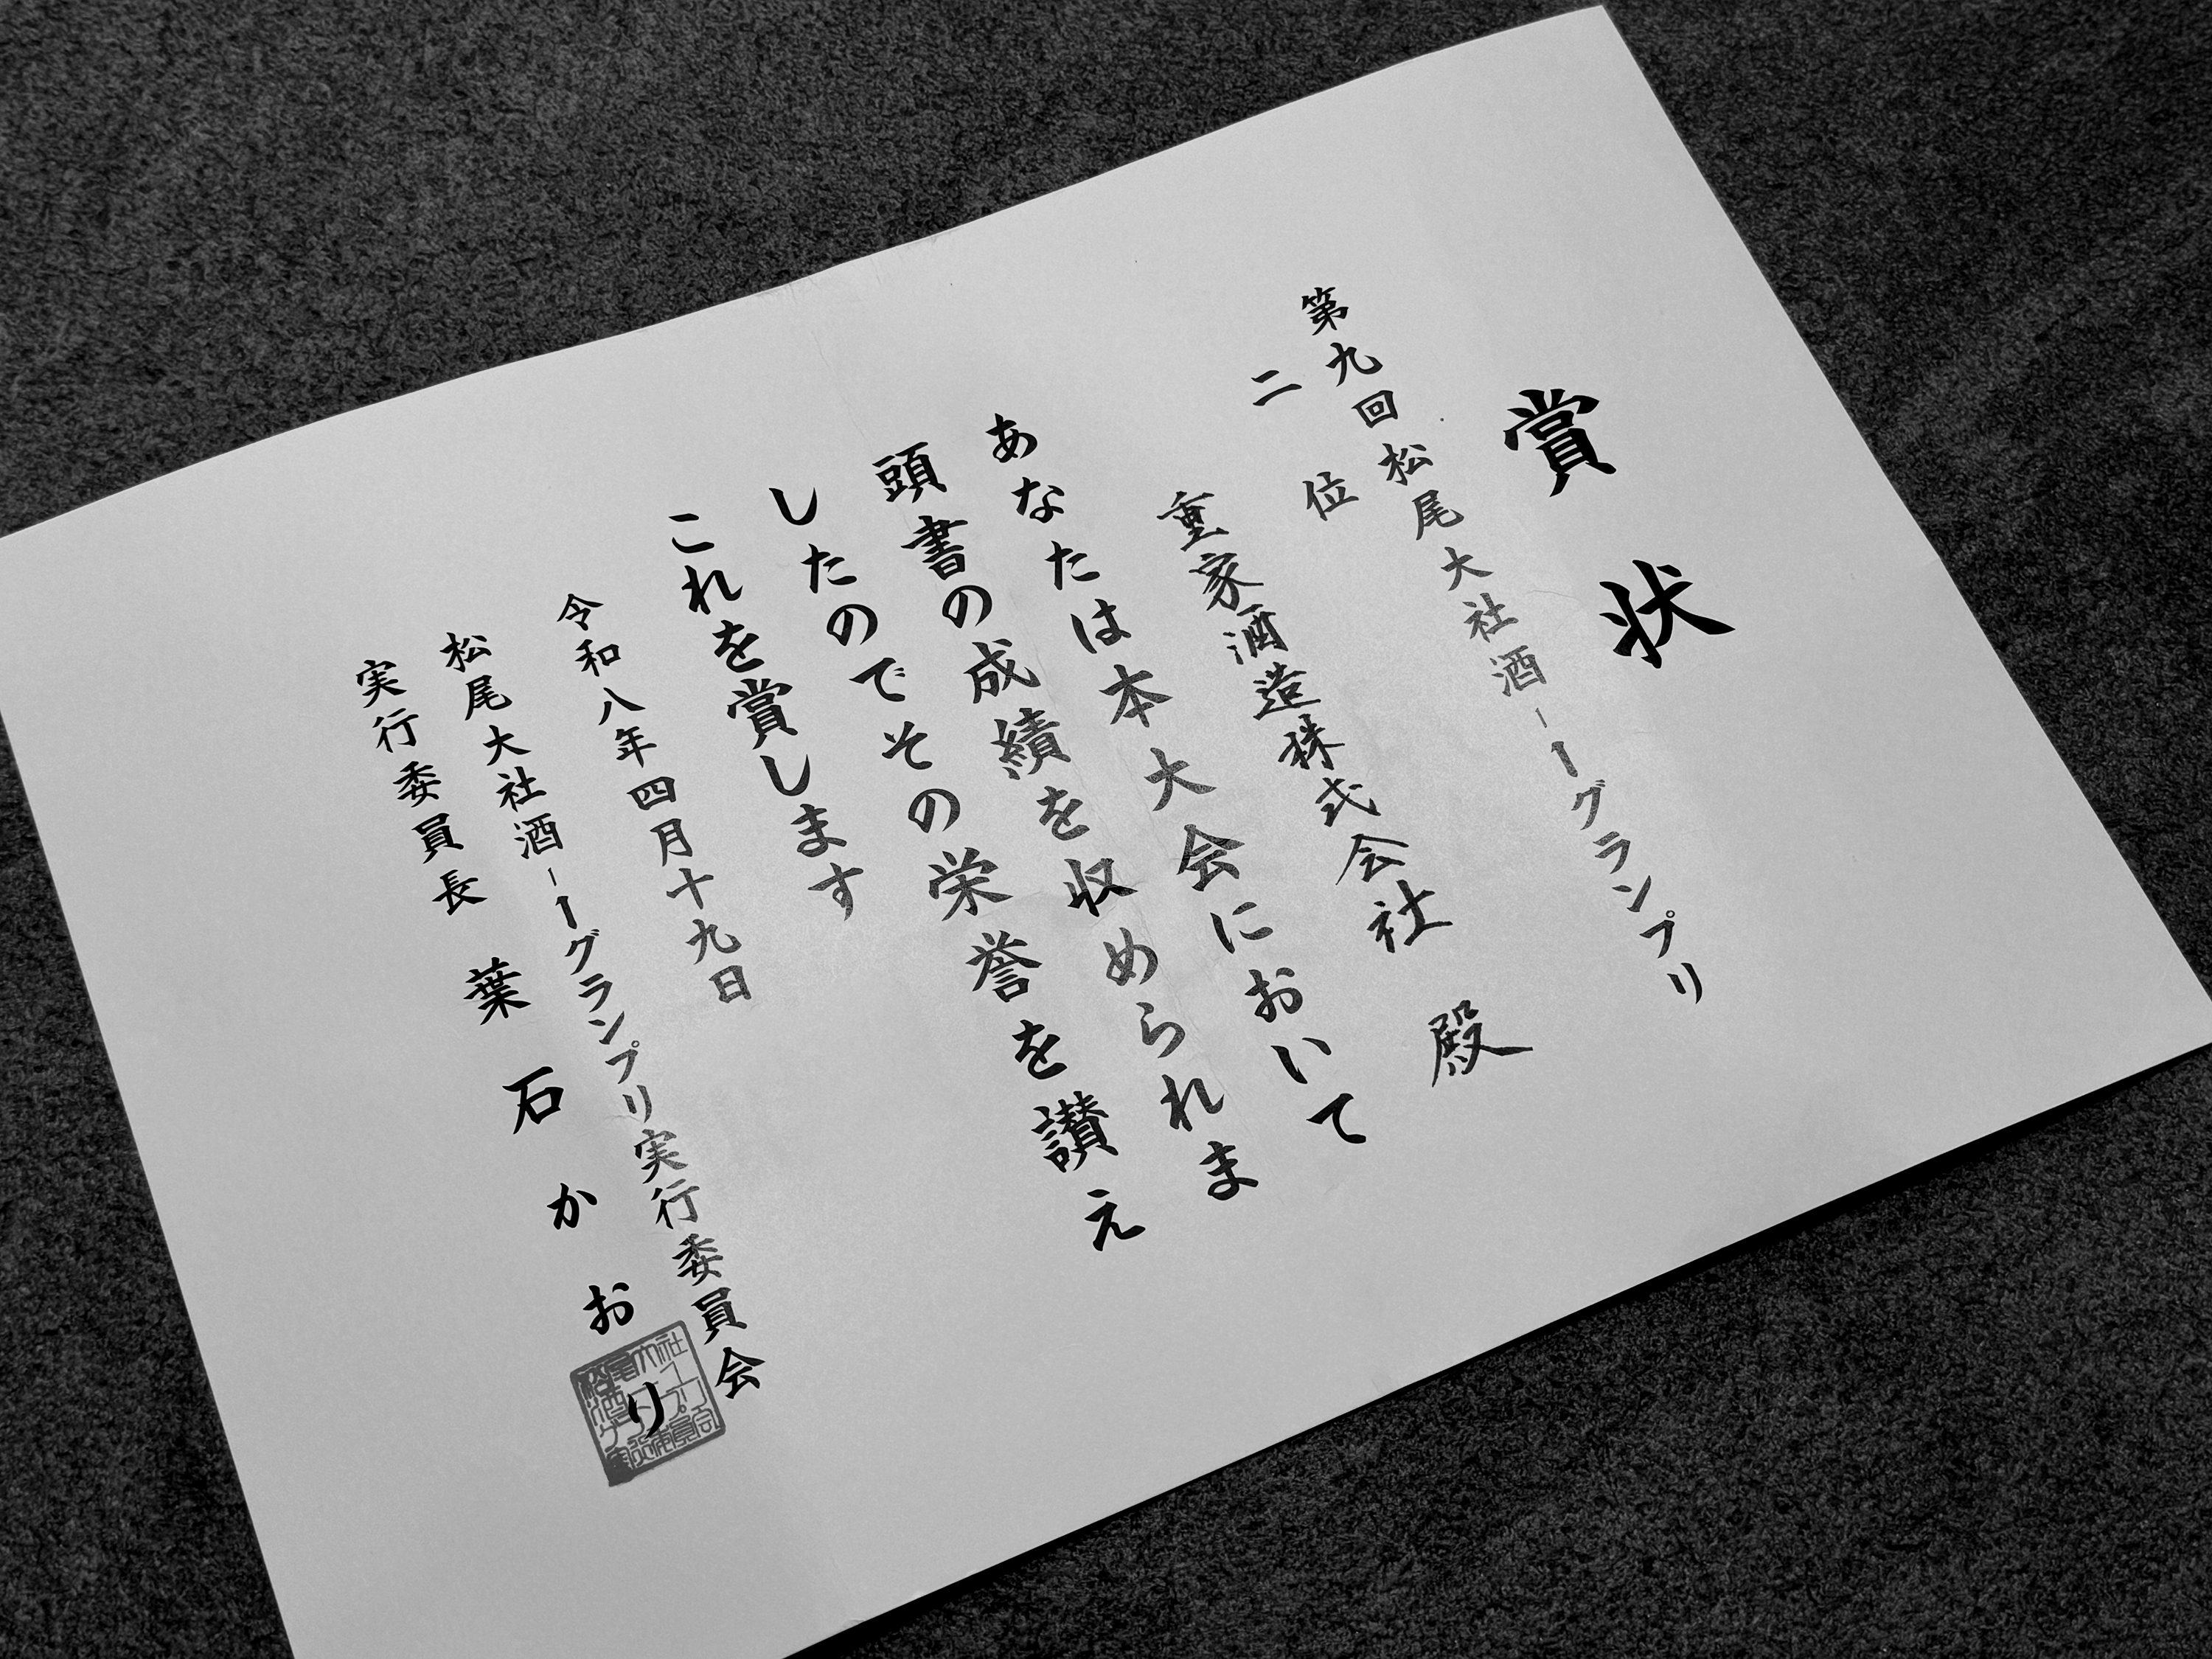 賞状
第九回松尾大社酒ー1グランプリ
二位
重家酒造株式会社 殿
あなたは本大会において
頭書の成績を収められま
したのでその栄誉を讃え
これを賞します
令和八年四月十九日
松尾大社酒ー1グランプリ実行委員会
実行委員長 葉石かおり
松尾大社
酒ー1グランプリ
実行委員会